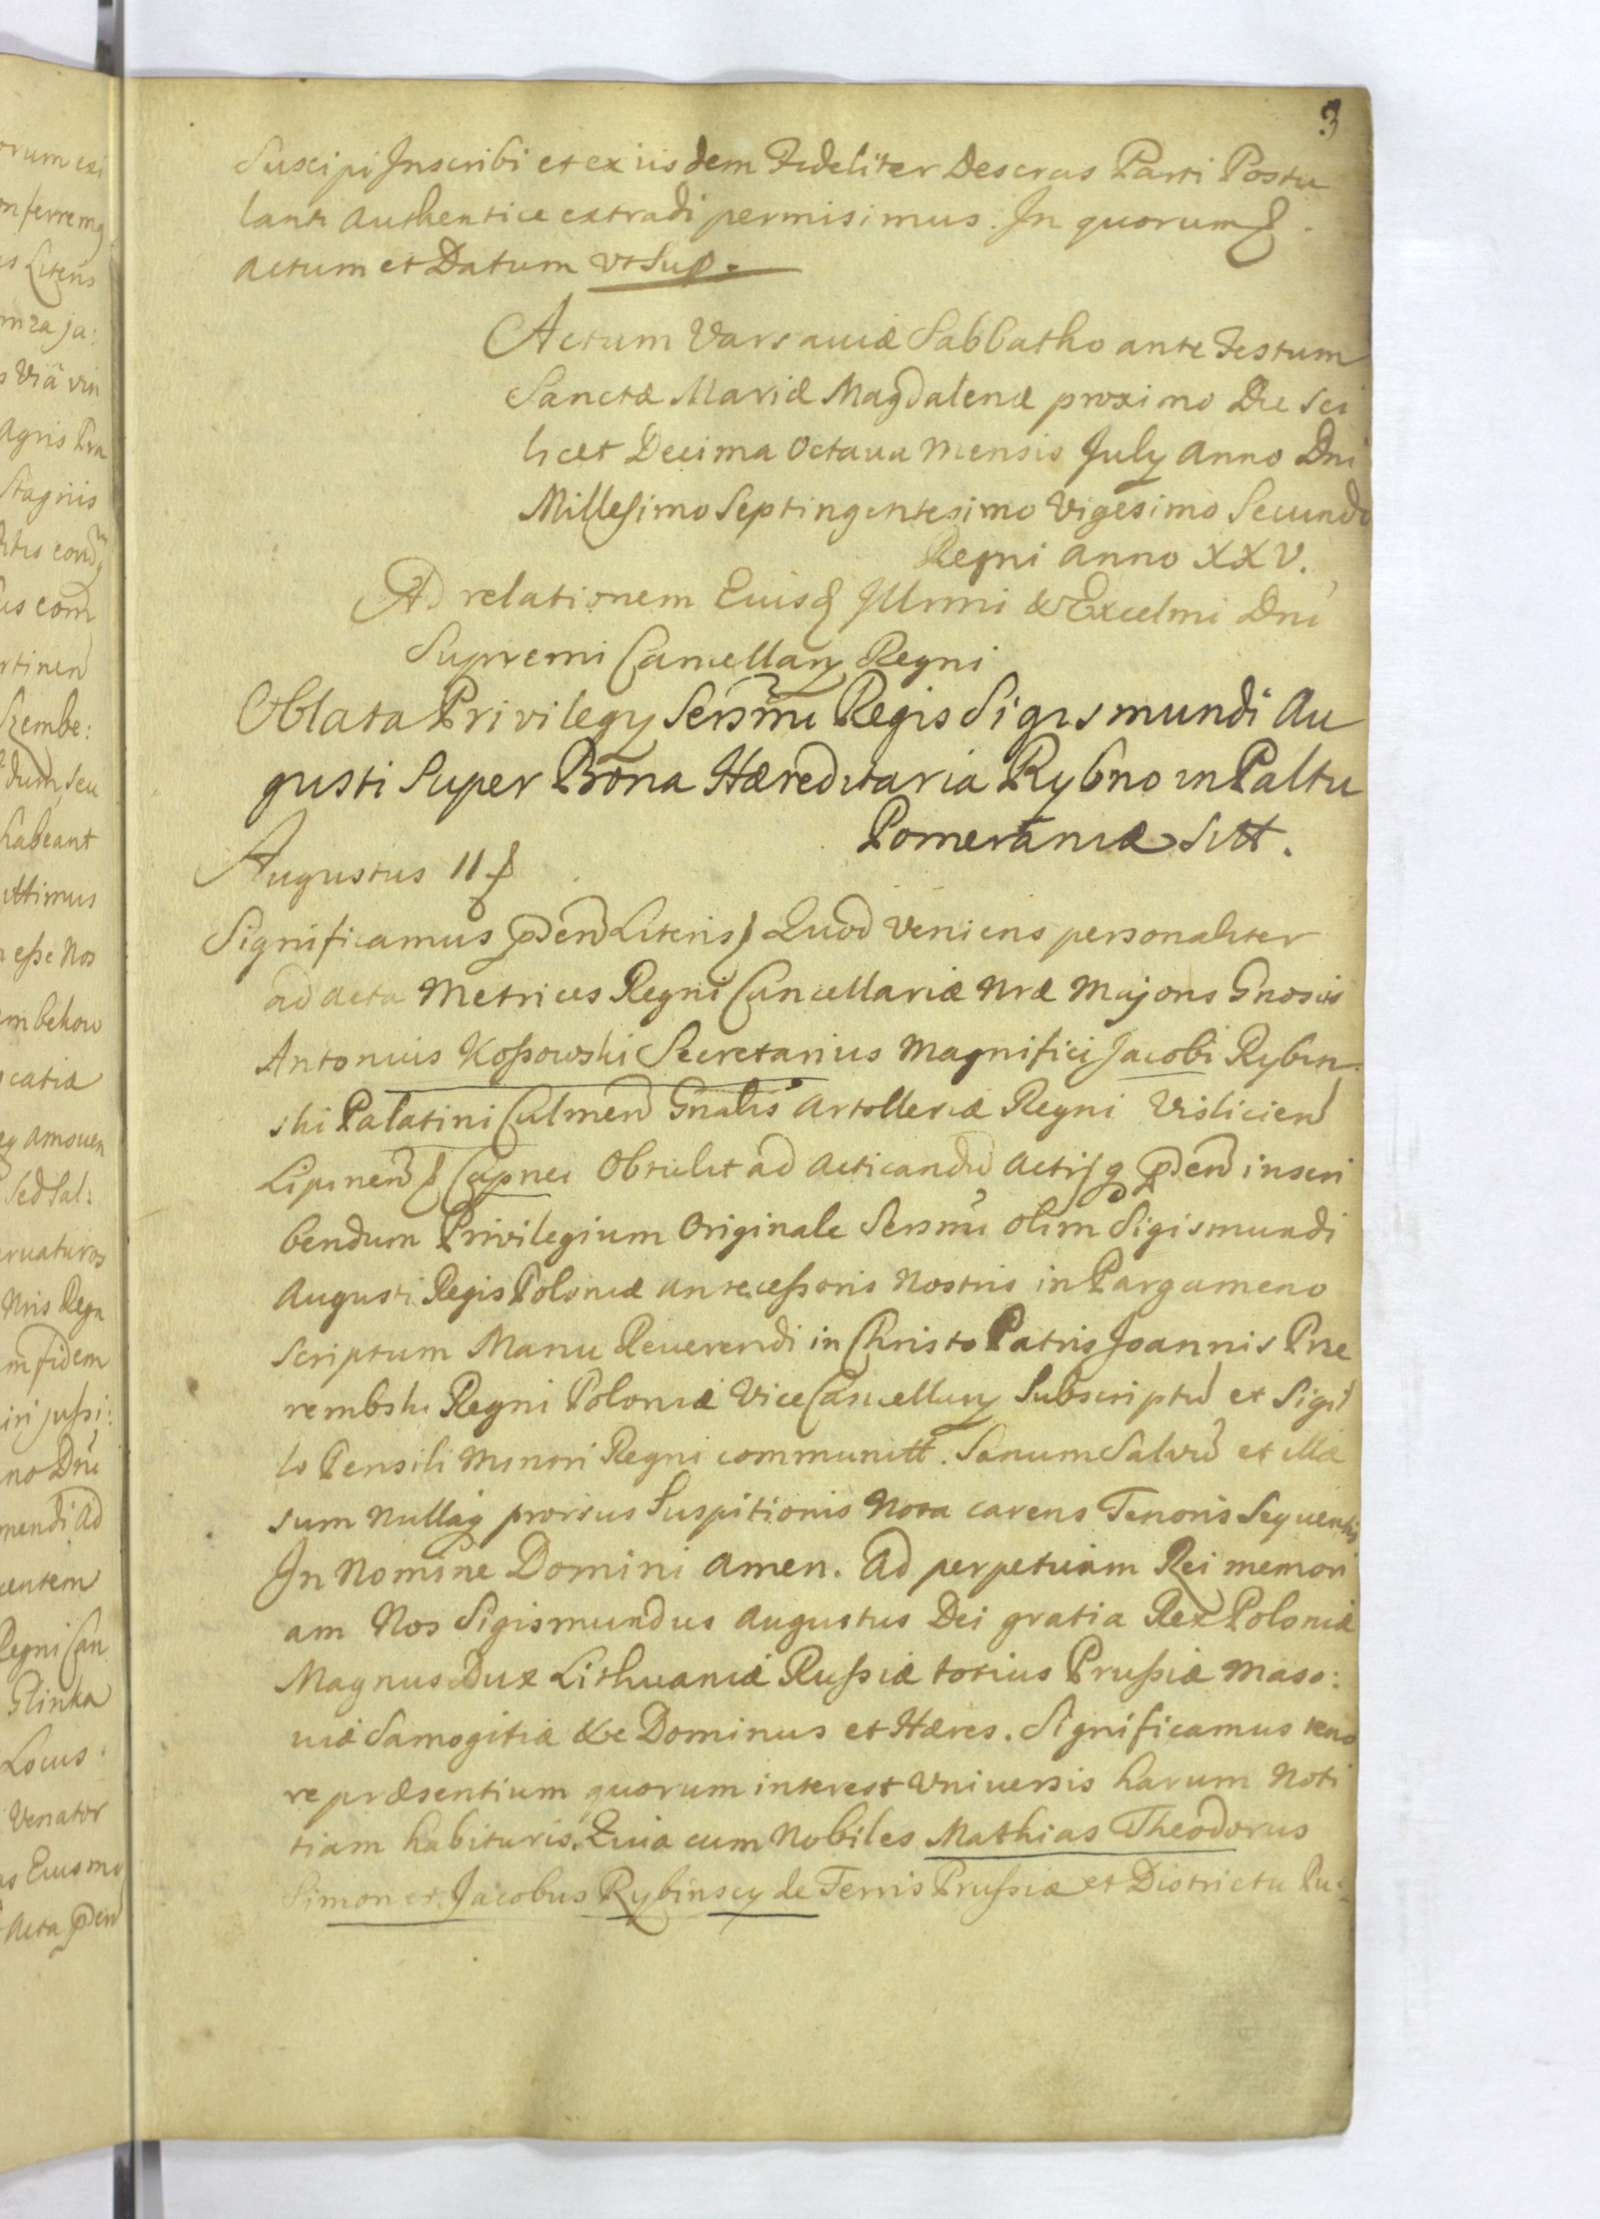 3
Suscipi Inscribi et ex iisdem Fideliter Descras Parti Postu
lanti Authentice extradi permisimus. In quorum
Actum et Datum vt Sup.
Actum Varsauiæ Sabbatho ante Festum
Sanctæ Mariæ Magdalenæ proximo Die Sci
licet Decima Octaua Mensis July Anno Dni
Millesimo Septingentesimo Vigesimo Secundo
Regni Anno XXV.
Ad relationem Eiusd Illmi & Excelmi Dni
Supremi Cancellary Regni
Oblata Privilegy Sersmi Regis Sigismundi Au
gusti Super Bona Hæreditaria Rybno in Paltu
Pomeraniæ Sitt.
Augustus II
Significamus pden Literis Quod Veniens personaliter
ad Acta Metrices Regni Cancellariæ Nræ Majoris Gnosus
Antonius Kossowski Secretarius Magnifici Jacobi Rybin
ski Palatini Culmen Gnalis Artolleriæ Regni Vislicien
Lipinen Capnei Obtulit ad Acticandu Actisq pden inscri
bendum Privilegium Originale Sersmi olim Sigismundi
Augusti Regis Poloniæ Antecessoris Nostris in Pargameno
Scriptum Manu Reuerendi in Christo Patris Joannis Prze
rembski Regni Poloniæ Vice Cancellary Subscriptu et Sigil
lo Pensili Minori Regni communitt. Sanum Salvu et illæ
sum Nullaq prorsus Suspitionis Nota carens Tenoris Sequentis
In Nomine Domini Amen. Ad perpetuam Rei memori
am Nos Sigismundus Augustus Dei gratia Rex Poloniæ
Magnus Dux Lithuaniæ Russiæ totius Prussiæ Maso:
uiæ Samogitiæ &c Dominus et Hæres. Significamus teno
re præsentium quorum interest Vniuersis harum Noti
tiam habituris. Quia cum Nobiles Mathias Theodorus
Simon et Jacobus Rybinscy de Terris Prussiæ et Districtu Pu: